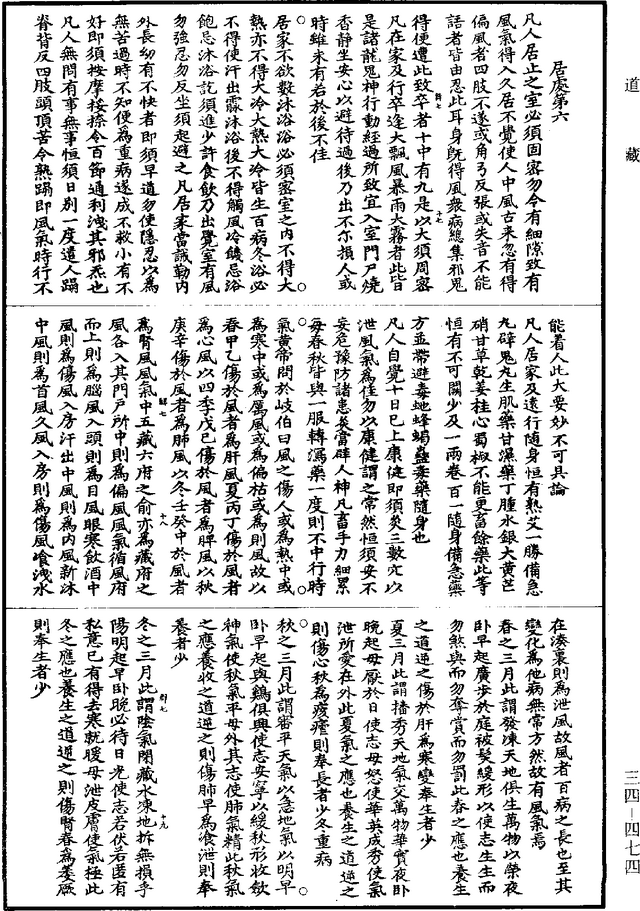 道藏
居處第六
凡人居止之室必須固密勿令有細隙致有
風氣得入久居不覺使人中風古來忽有得
偏風者四肢不遂或角弓反張或失音不能
話者皆由忽此耳身既得風衆病總集邪鬼
得便遭此致卒者十中有九是以大須周密
凡在家及行卒逢大飄風暴雨大霧者此皆
是諸龍鬼神行動經過所致宜入室門戶燒
香靜坐安心以避待過後乃出不尔損人或
時雖未有若於後不佳
居家不欲數沐浴浴必須密室之內不得大
熱亦不得大冷大熱大冷皆生百病冬浴必
不得使汗出霢沐浴後不得觸風冷饑忌浴
飽忌沐浴訖須進少許食飲乃出覺室有風
勿強忍勿反坐須起避之凡居家當誡勒內
外長幼有不快者即須早道勿使隱忍以為
無苦過時不知便為重病遂成不救小有不
好即須按摩桵捺令百節通利洩其邪炁也
凡人無問有事無事恒須日別一度遣人蹋
脊背反四肢頭頂苦令熟蹋即風氣時行不
能着人此大要妙不可具論
凡人居家及遠行隨身恒有熟艾一勝備急
九辟鬼丸生肌藥甘濕藥丁腫水銀大黃芒
硝甘草乾姜桂心蜀椒不能更畜餘藥此等
恒有不可闕少及一兩卷百一隨身備急藥
方並帶避毒虵蜂蝎蠱毒藥隨身也
凡人自覺十日已上康健即須灸三數穴以
泄風氣為佳勿以康健謂之常然恒須安不
妄危豫防諸患灸當辟人神凡畜手力細累
每春秋皆與一服轉瀉藥一度則不中行時
氣黃帝問於岐伯曰風之傷人或為熱中或
為寒中或為厲風或為偏枯或為則風故以
春甲乙傷於風者為肝風夏丙丁傷於風者
為心風以四季戊己傷於風者為脾風以秋
庚辛傷於風者為肺風以冬壬癸中於風者
為腎風風氣中五藏六府之俞亦為藏府之
風各入其門戶所中則為偏風風氣循風府
而上則為腦風入頭則為目風眼寒飲酒中
風則為傷風入房汗出中風則為內風新沐
中風則為首風久風入房則為傷風飡洩水
在湊裏則為泄風故風者百病之長也至其
變化為他病無常方然故有風氣焉
春之三月此謂發凍天地俱生萬物以榮夜
卧早起廣步於庭被髮緩形以使志生生而
勿煞與而勿奪賞而勿罰此春之應也養生
之道逆之傷於肝為寒變奉生者少
夏三月此謂播秀天地氣交萬物華實夜卧
晚起毋厭於日使志毋怒使華英成秀使氣
泄所愛在外此夏氣之應也養生之道逆之
則傷心秋為痎瘧則奉長者少冬重病
秋之三月此謂審平天氣以急地氣以明早
卧早起與鷄俱興使志安寧以緩秋形收斂
神氣使秋氣平毋外其志使肺氣精此秋氣
之應養收之道逆之則傷肺早為飡泄則奉
養者少
冬之三月此謂陰氣閉藏水凍地坼無損乎
陽明起早卧晚必待日光使志若伏若匿有
私意已有得去寒就暖毋泄皮膚使氣極此
冬之應也養生之道逆之則傷腎春為萎厥
則奉生者少
三四—四七四